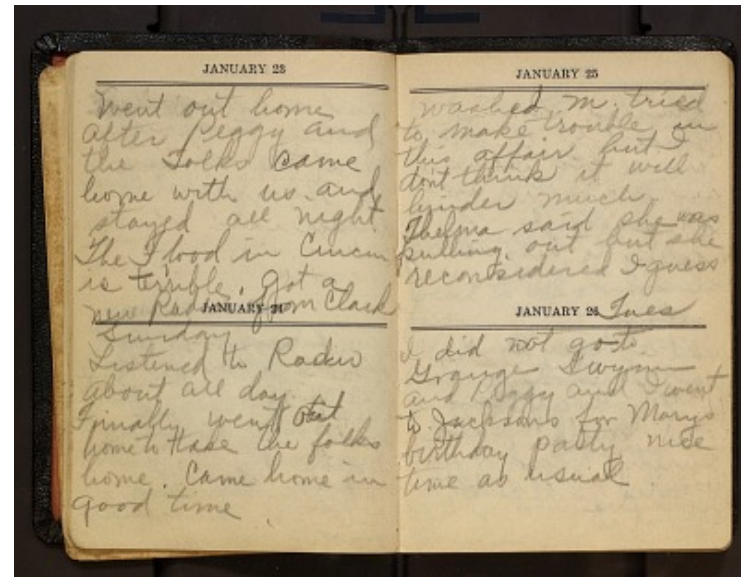 JANUARY 23
Went out home
after Peggy and
the Folks came
home with us and
stayed all night
The Flood in Cincin
is terrible. Got a
new Radio from Clark
JANUARY 24
Sunday
Listened to Radio
about all day.
Finally went out
home to take the folks
home. Came home in
good time.
JANUARY 25
Washed. M. tried
to make trouble in
this affair but I
dont think it will
hinder much.
Thelma said she was
pulling out but she
reconsidered I guess
JANUARY 26 Tues
I did not go to
Grange Gwynn
and Peggy and I went
to Jacksons for Marys
birthday party nice
time as usual